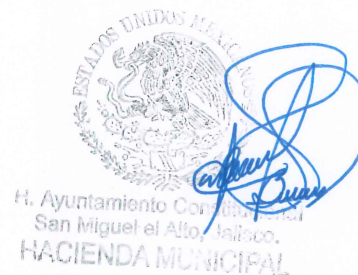 ESTADOS UNIDOS MEXICANOS
H. Ayuntamiento Constitucional
San Miguel el Alto, Jalisco.
HACIENDA MUNICIPAL